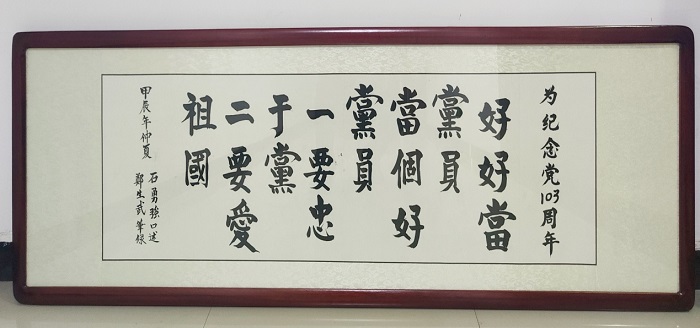 为纪念党103周年
好好當
黨員
當個好
黨員
一要忠
于黨
二要愛
祖國
甲辰年仲夏
石勇強口述
鄭生武筆錄